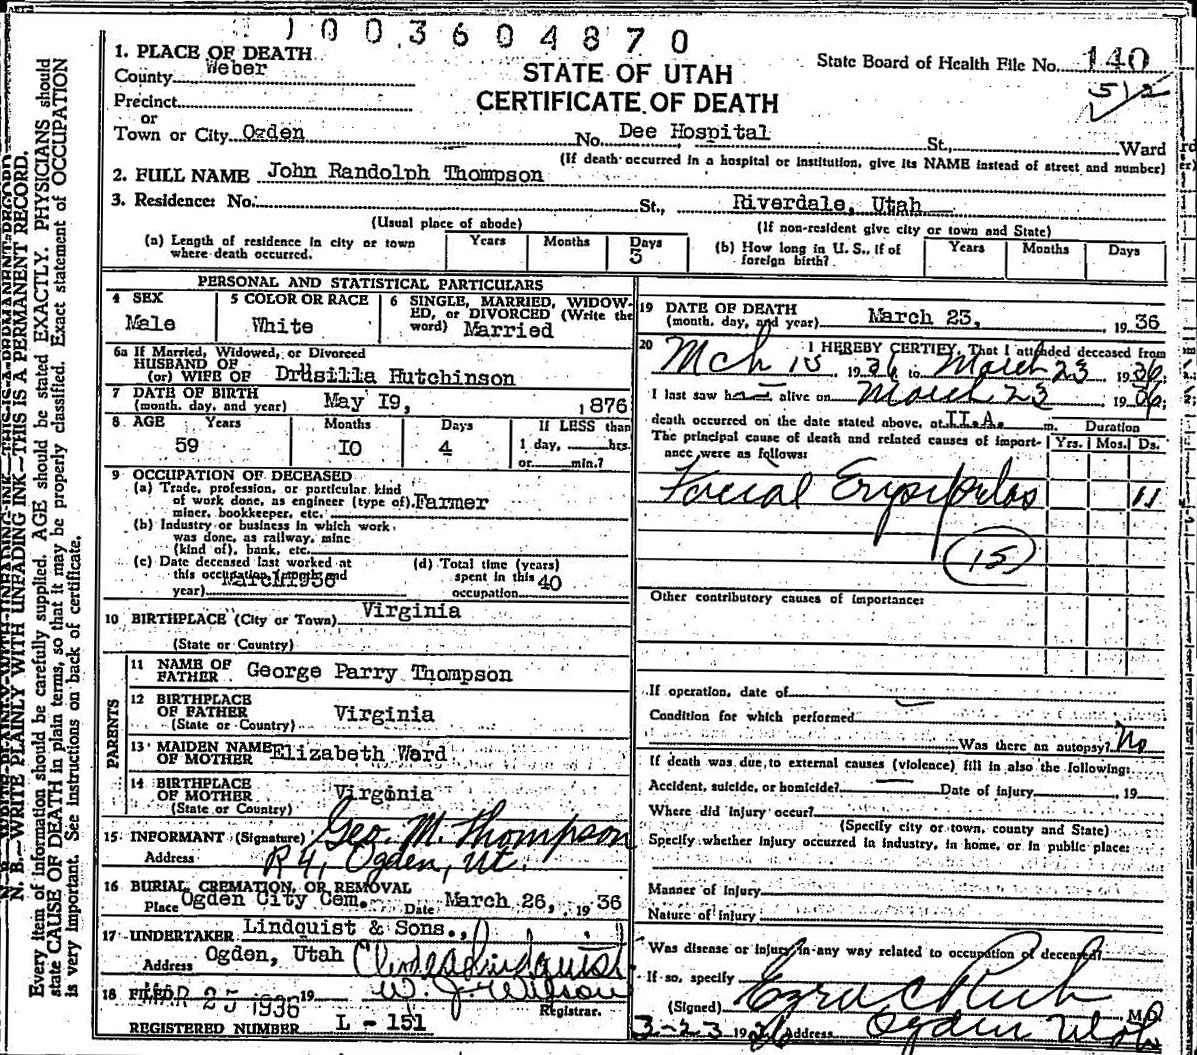 1003604870
1. PLACE OF DEATH
County Weber
Precinct
or
Town or City Ogden No. Dee Hospital St., Ward
STATE OF UTAH
CERTIFICATE OF DEATH
State Board of Health File No. 140
512
(If death occurred in a hospital or institution, give its NAME instead of street and number)
2. FULL NAME John Randolph Thompson
3. Residence: No. St., Riverdale, Utah
(Usual place of abode) (If non-resident give city or town and State)
(a) Length of residence in city or town where death occurred. Years Months Days 5
(b) How long in U. S., if of foreign birth? Years Months Days
PERSONAL AND STATISTICAL PARTICULARS
4 SEX Male
5 COLOR OR RACE White
6 SINGLE, MARRIED, WIDOWED, or DIVORCED (Write the word) Married
6a If Married, Widowed, or Divorced
HUSBAND OF
(or) WIFE OF Drusilla Hutchinson
7 DATE OF BIRTH
(month, day, and year) May I9, 1876
8 AGE Years 59 Months IO Days 4 If LESS than
1 day, hrs.
or min.?
9 OCCUPATION OF DECEASED
(a) Trade, profession, or particular kind
of work done, as engineer (type of), Farmer
miner, bookkeeper, etc.
(b) Industry or business in which work
was done, as railway, mine
(kind of), bank, etc.
(c) Date deceased last worked at
this occupation (month and
year) March 1936
(d) Total time (years)
spent in this
occupation 40
10 BIRTHPLACE (City or Town) Virginia
(State or Country)
PARENTS
11 NAME OF
FATHER George Parry Thompson
12 BIRTHPLACE
OF FATHER Virginia
(State or Country)
13 MAIDEN NAME
OF MOTHER Elizabeth Ward
14 BIRTHPLACE
OF MOTHER Virginia
(State or Country)
15 INFORMANT (Signature) Geo. M. Thompson
Address R 4, Ogden, Ut.
16 BURIAL, CREMATION, OR REMOVAL
Place Ogden City Cem. Date March 26, 19 36
17 UNDERTAKER Lindquist & Sons.,
Address Ogden, Utah
18 FILED MAR 25 1936 19 W. J. Wilson
Registrar.
REGISTERED NUMBER L - 151
19 DATE OF DEATH
(month, day, and year) March 23, 19 36
20 I HEREBY CERTIFY, That I attended deceased from
Mch 15 1936 to March 23 1936
I last saw h alive on March 23 1936
death occurred on the date stated above, at II.A. m. Duration
The principal cause of death and related causes of importance were as follows: Yrs. Mos. Ds.
Facial Erysipelas 11
15
Other contributory causes of importance:
If operation, date of
Condition for which performed
Was there an autopsy? No
If death was due to external causes (violence) fill in also the following:
Accident, suicide, or homicide? Date of injury , 19
Where did injury occur?
(Specify city or town, county and State)
Specify whether injury occurred in industry, in home, or in public place:
Manner of injury
Nature of injury
Was disease or injury in any way related to occupation of deceased?
If so, specify
(Signed) Ezra C Rich M.D.
3-23 1936 Address Ogden Utah
N. B.—WRITE PLAINLY WITH UNFADING INK—THIS IS A PERMANENT RECORD.
Every item of information should be carefully supplied. AGE should be stated EXACTLY. PHYSICIANS should
state CAUSE OF DEATH in plain terms, so that it may be properly classified. Exact statement of OCCUPATION
is very important. See instructions on back of certificate.